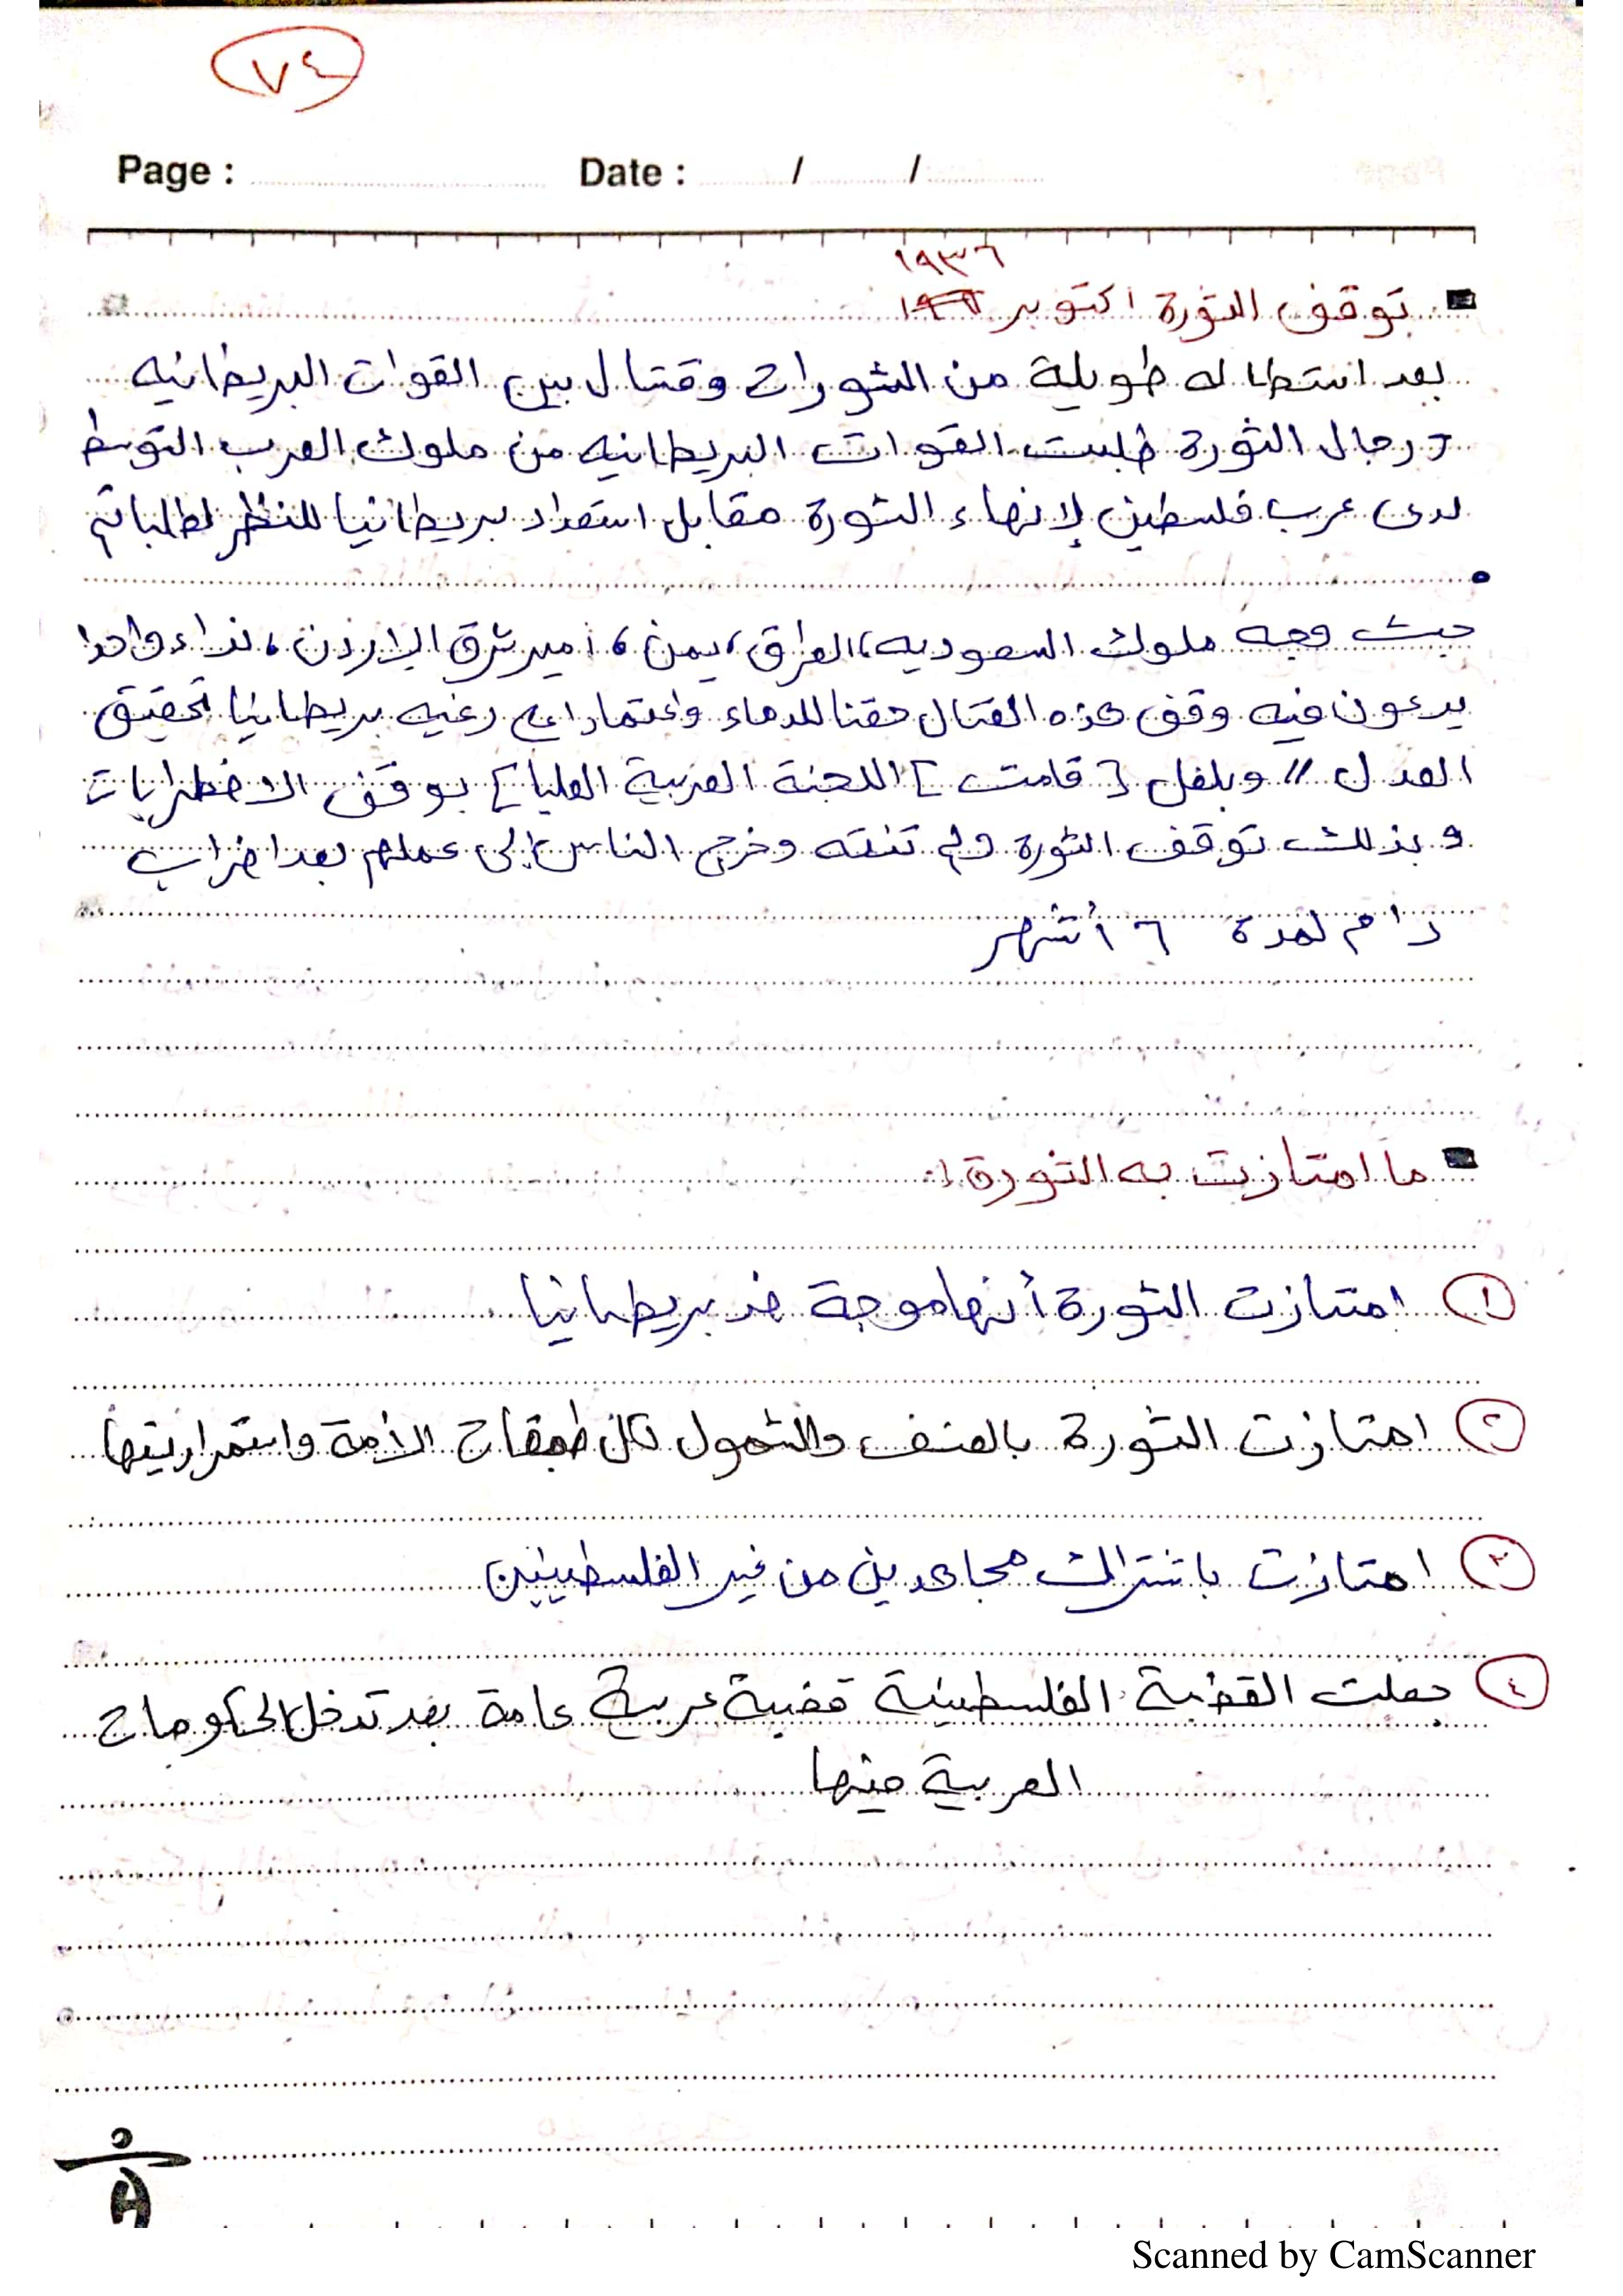 ٧٤
Page : Date : / /
١٩٣٦
توقف الثورة اكتوبر
بعد استطاله طويلة من الثورات وقتال بين القوات البريطانيه
و رجال الثورة طلبت القوات البريطانيه من ملوك العرب التوسط
لدى عرب فلسطين لإنهاء الثورة مقابل استعداد بريطانيا للنظر لطلباتهم
حيث وجه ملوك السعوديه، العراق، يمن، أمير شرق الاردن، نداء واحدا
يدعون فيه وقف هذه القتال حقنا للدماء واعتمادا على رغبه بريطانيا تحقيق
العدل // وبلفعل [قامت] اللجنة العربية العليا] بوقف الاضطرابات
و بذلك توقف الثورة ولم تنته وخرج الناس إلى عملهم بعد اضراب
دام لمدة ٦ أشهر
ما امتازت به الثورة :
١ امتازت الثورة أنها موجة ضد بريطانيا
٢ امتازت الثورة بالعنف والشمول لكل طبقات الأمة واستمراريتها
٣ امتازت باشتراك مجاهدين من غير الفلسطينين
٤ جعلت القضية الفلسطينية قضية عربية عامة بعد تدخل الحكومات
العربية فيها
Scanned by CamScanner